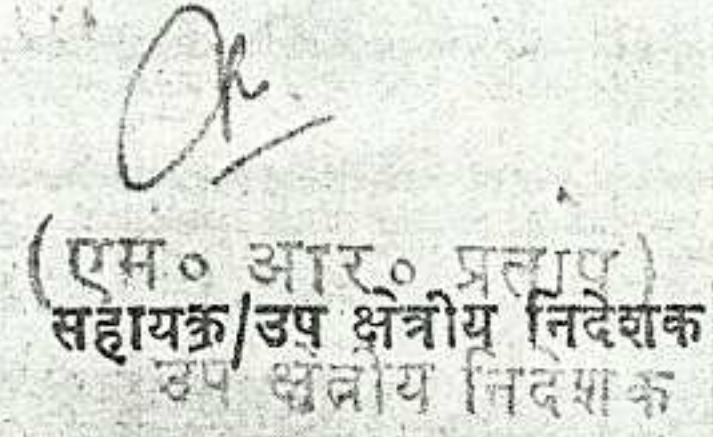 (एम० आर० प्रताप)
सहायक/उप क्षेत्रीय निदेशक
उप क्षेत्रीय निदेशक